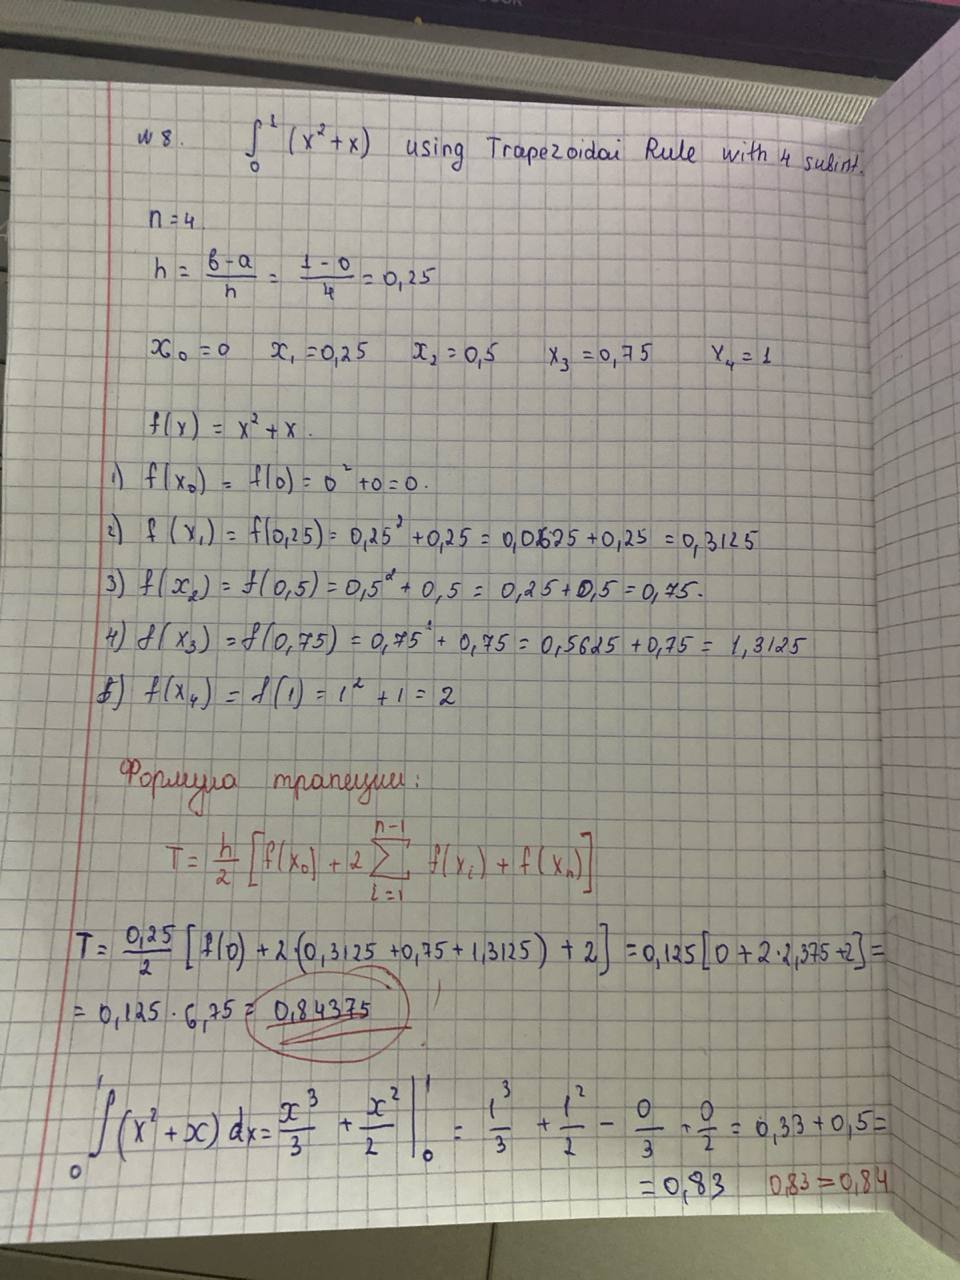 №8. ∫₀¹ (x² + x) using Trapezoidai Rule with 4 subint.
n = 4.
h = (b-a)/n = (1-0)/4 = 0,25
x₀ = 0 x₁ = 0,25 x₂ = 0,5 x₃ = 0,75 x₄ = 1
f(x) = x² + x.
1) f(x₀) = f(0) = 0² + 0 = 0.
2) f(x₁) = f(0,25) = 0,25² + 0,25 = 0,0625 + 0,25 = 0,3125
3) f(x₂) = f(0,5) = 0,5² + 0,5 = 0,25 + 0,5 = 0,75.
4) f(x₃) = f(0,75) = 0,75² + 0,75 = 0,5625 + 0,75 = 1,3125
5) f(x₄) = f(1) = 1² + 1 = 2
Формула трапеции:
T = h/2 [f(x₀) + 2 ∑ᵢ₌₁ⁿ⁻¹ f(xᵢ) + f(xₙ)]
T = 0,25/2 [f(0) + 2·(0,3125 + 0,75 + 1,3125) + 2] = 0,125[0 + 2·2,375 + 2] =
= 0,125 · 6,75 = 0,84375
∫₀¹ (x² + x) dx = x³/3 + x²/2 |₀¹ = 1³/3 + 1²/2 - 0/3 + 0/2 = 0,33 + 0,5 =
= 0,83 0,83 = 0,84